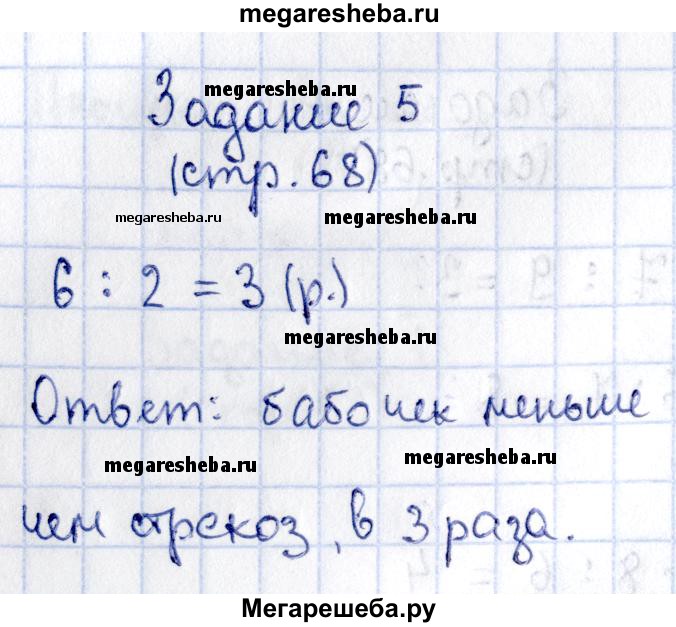 megaresheba.ru
megaresheba.ru
Задание 5
(стр. 68)
megaresheba.ru
megaresheba.ru
6 : 2 = 3 (р.)
megaresheba.ru
Ответ: бабочек меньше
megaresheba.ru
megaresheba.ru
чем стрекоз, в 3 раза.
Мегарешеба.ру